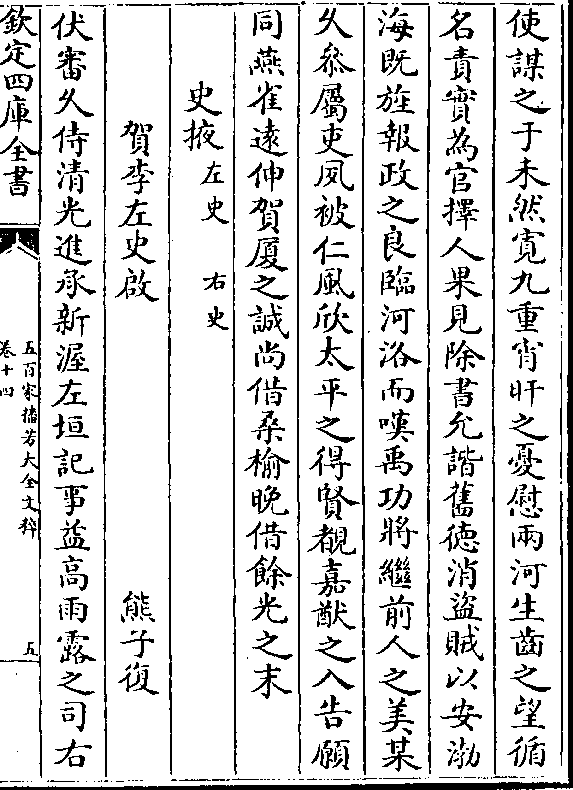 使謀之于未然寛九重宵旰之憂慰兩河生齒之望循
名責實為官擇人果見除書允諧舊德消盜賊以安渤
海既旌報政之良臨河洛而嘆禹功將繼前人之美某
久叅屬吏夙被仁風欣太平之得賢覩嘉猷之入告願
同燕雀遠伸賀厦之誠尚借桑榆晚借餘光之末
史掖左史　右史
賀李左史啟　　熊子復
伏審久侍清光進承新渥左垣記事益高雨露之司右
欽定四庫全書
五百家播芳大全文粹
卷十四
五